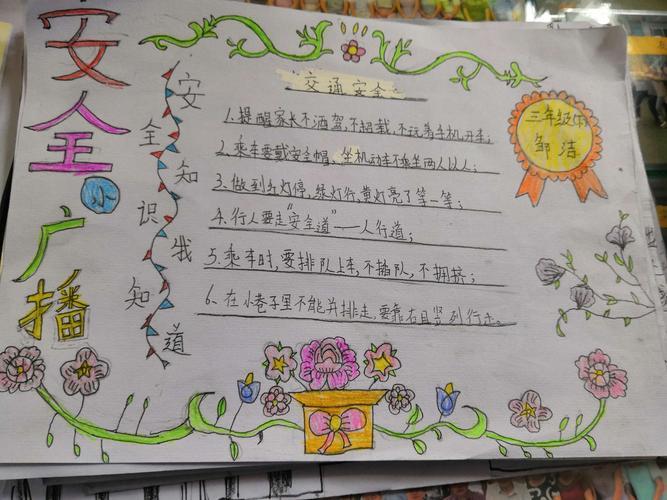 安全小广播
安全知识我知道
交通安全
1. 提醒家长不酒驾,不超载,不玩着手机开车;
2. 乘车要戴安全帽、坐机动车不乘坐两人以上;
3. 做到红灯停,绿灯行,黄灯亮了等一等;
4. 行人要走"安全道"——人行道;
5. 乘车时,要排队上车,不插队,不拥挤;
6. 在小巷子里不能并排走,要靠右且竖列行走。
三年级
邹洁